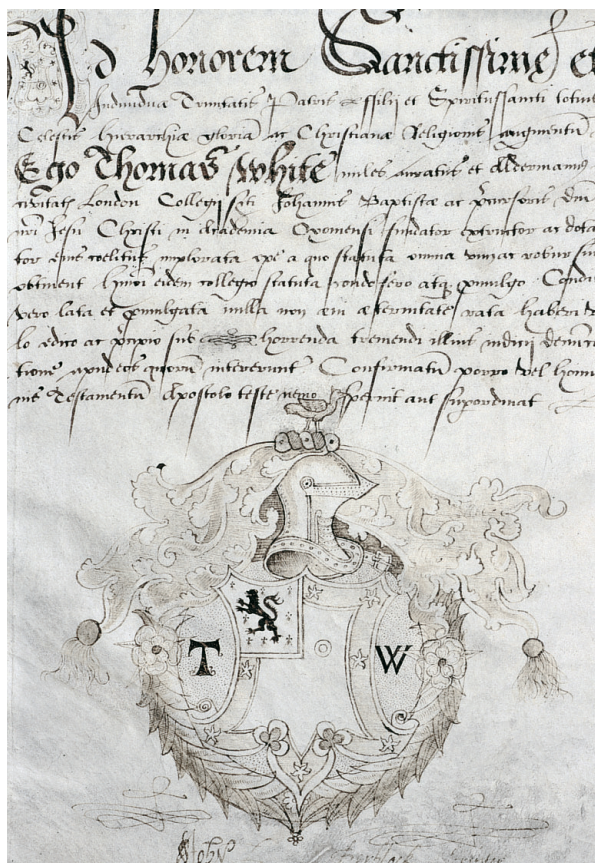 Ad honorem Sanctissime et
Indiuidue Trinitatis Patris ffilij et Spiritussancti totius
Celestis hierarchiæ gloriã ac Christianæ Religionis augmentũ
Ego Thomas White miles auratus et Aldermanus
ciuitatis London Collegij Sti Johannis Baptistæ ac p̃cursoris dñi
nr̃i Jesu Christi in Academia Oxoniensi fundator extructor ac dota
tor eius coelitus implorata ope a quo statuta omnia robur
obtinent eidem collegio statuta condo fero atq̃ ꝓmulgo
vero lata et ꝓmulgata nulla non æternitate rata haberi
edico ac p̃cipio sub horrenda tremendi illius iudicij
tione apud eos quorũ intererunt Confirmatũ porro vel homi
nis Testamentũ Apostolo teste nemo spernit aut superordinat
T W